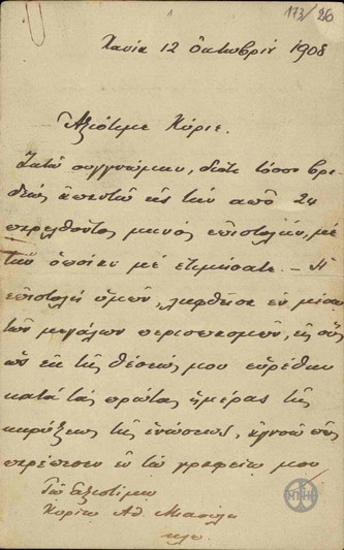 173/26
Χανιά 12 Οκτωβρίου 1908
Αξιότιμε Κύριε.
Ζητώ συγγνώμην, διότι τόσο βρα
δέως απαντώ εις την από 24
παρελθόντος μηνός επιστολήν, με
την οποίαν με ετιμήσατε. – Η
επιστολή υμών, ληφθείσα εν μέσω
των μεγάλων περισπασμών, εις ους
ως εκ της θέσεώς μου ευρέθην
κατά τας πρώτας ημέρας της
κηρύξεως της ενώσεως, αγνοώ πώς
παρέπεσεν εν τω γραφείω μου
Τω Αξιοτίμω
Κυρίω Αθ.
κλπ.